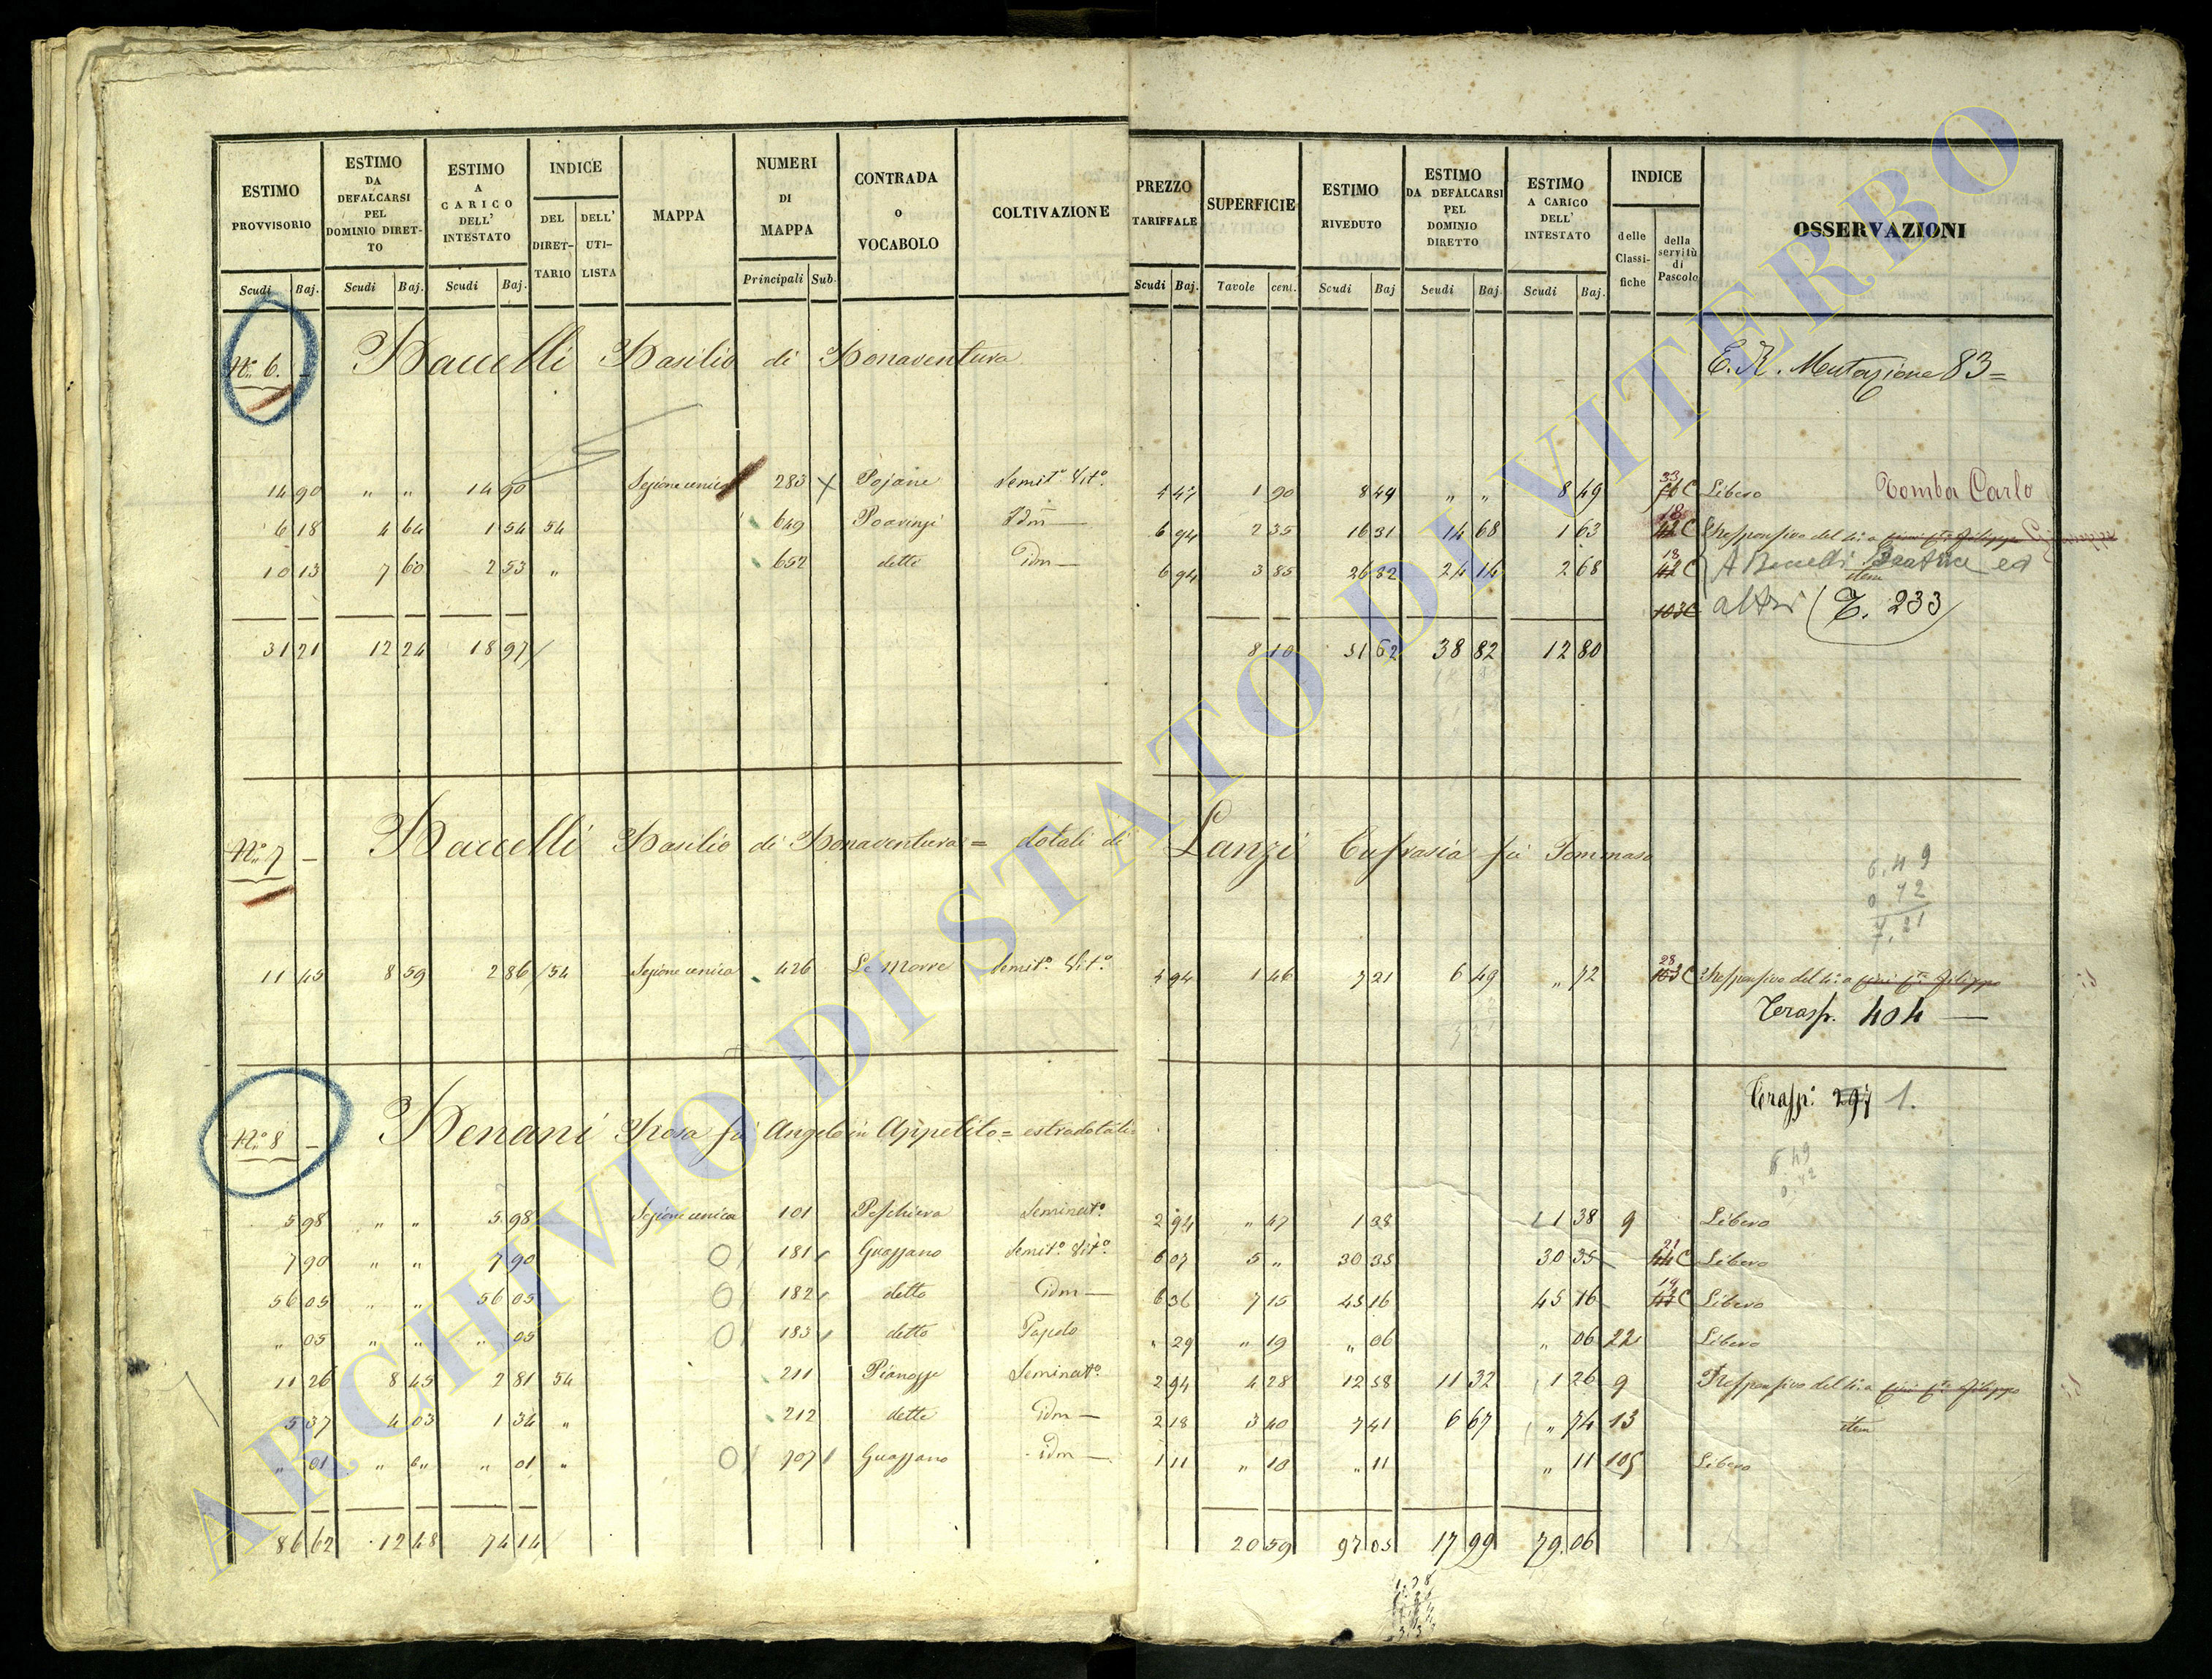 ESTIMO PROVVISORIO | ESTIMO DA DEFALCARSI PEL DOMINIO DIRETTO | ESTIMO A CARICO DELL' INTESTATO | INDICE DEL DIRETTARIO | DELL' UTILISTA | MAPPA | NUMERI DI MAPPA | CONTRADA o VOCABOLO | COLTIVAZIONE | PREZZO TARIFFALE | SUPERFICIE | ESTIMO RIVEDUTO | ESTIMO DA DEFALCARSI PEL DOMINIO DIRETTO | ESTIMO A CARICO DELL' INTESTATO | INDICE delle Classifiche | della servitù di Pascolo | OSSERVAZIONI
Scudi | Baj. | Scudi | Baj. | Scudi | Baj. | Principali | Sub. | Scudi | Baj. | Tavole | cent. | Scudi | Baj | Scudi | Baj. | Scudi | Baj.
No. 6. Baccelli Basilio di Bonaventura E.R. Mutazione 83=
14 90 " " 14 90 Sezione unica 283 Pojane Semito Vito. 4 47 1 90 8 49 " " 8 49 33 C Libero Tomba Carlo
6 18 4 64 1 54 54 649 Idm 6 94 2 35 16 31 14 68 1 63 18 42 C Responsivo del 4o a
10 13 7 60 2 53 " 652 detto idm 6 94 3 85 26 82 24 14 2 68 18 42 C item A Benelli Beatrice ed
103C altri (T. 233)
31 21 12 24 18 97 8 10 51 62 38 82 12 80
No. 7 Baccelli Basilio di Bonaventura = dotali di Lanzi Eufrasia fu Tommaso
6.49
0.72
7.21
11 45 8 59 2 86 54 Sezione unica 426 Le Morre Semito. Vito. 4 94 1 46 7 21 6 49 " 72 28 103 C Responsivo del 4o a
Trasp. 404
Trasp: 297 1.
No. 8 Benani Rosa fu Angelo in Appetito = estradotali
6 49
0.72
5 98 " " 5 98 Sezione unica 101 Peschiera Seminato. 2 94 " 47 1 38 1 38 9 Libero
7 90 " " 7 90 181 Guazzano Semito. Vito. 6 07 5 " 30 35 30 35 21 44 C Libero
56 05 " " 56 05 182 detto idm 6 36 7 15 45 16 45 16 19 43 C Libero
" 05 " " " 05 183 detto Pascolo " 29 " 19 " 06 " 06 22 Libero
11 26 8 45 2 81 54 211 Pianozze Seminato. 2 94 4 28 12 58 11 32 1 26 9 Responsivo del 4o a
5 37 4 03 1 34 " 212 detto idm 2 18 3 40 7 41 6 67 " 74 13 item
" 01 " " " 01 " 707 Guazzano idm 1 11 " 10 " 11 " 11 105 Libero
86 62 12 48 74 14 20 59 97 05 17 99 79 06
ARCHIVIO DI STATO DI VITERBO